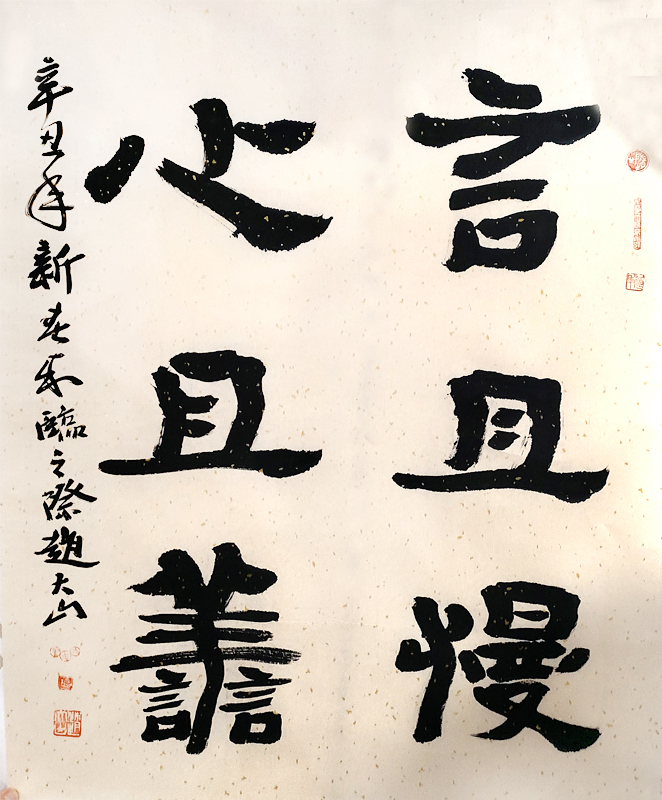 言且慢
心且譱
辛丑年新春来臨之際趙大山